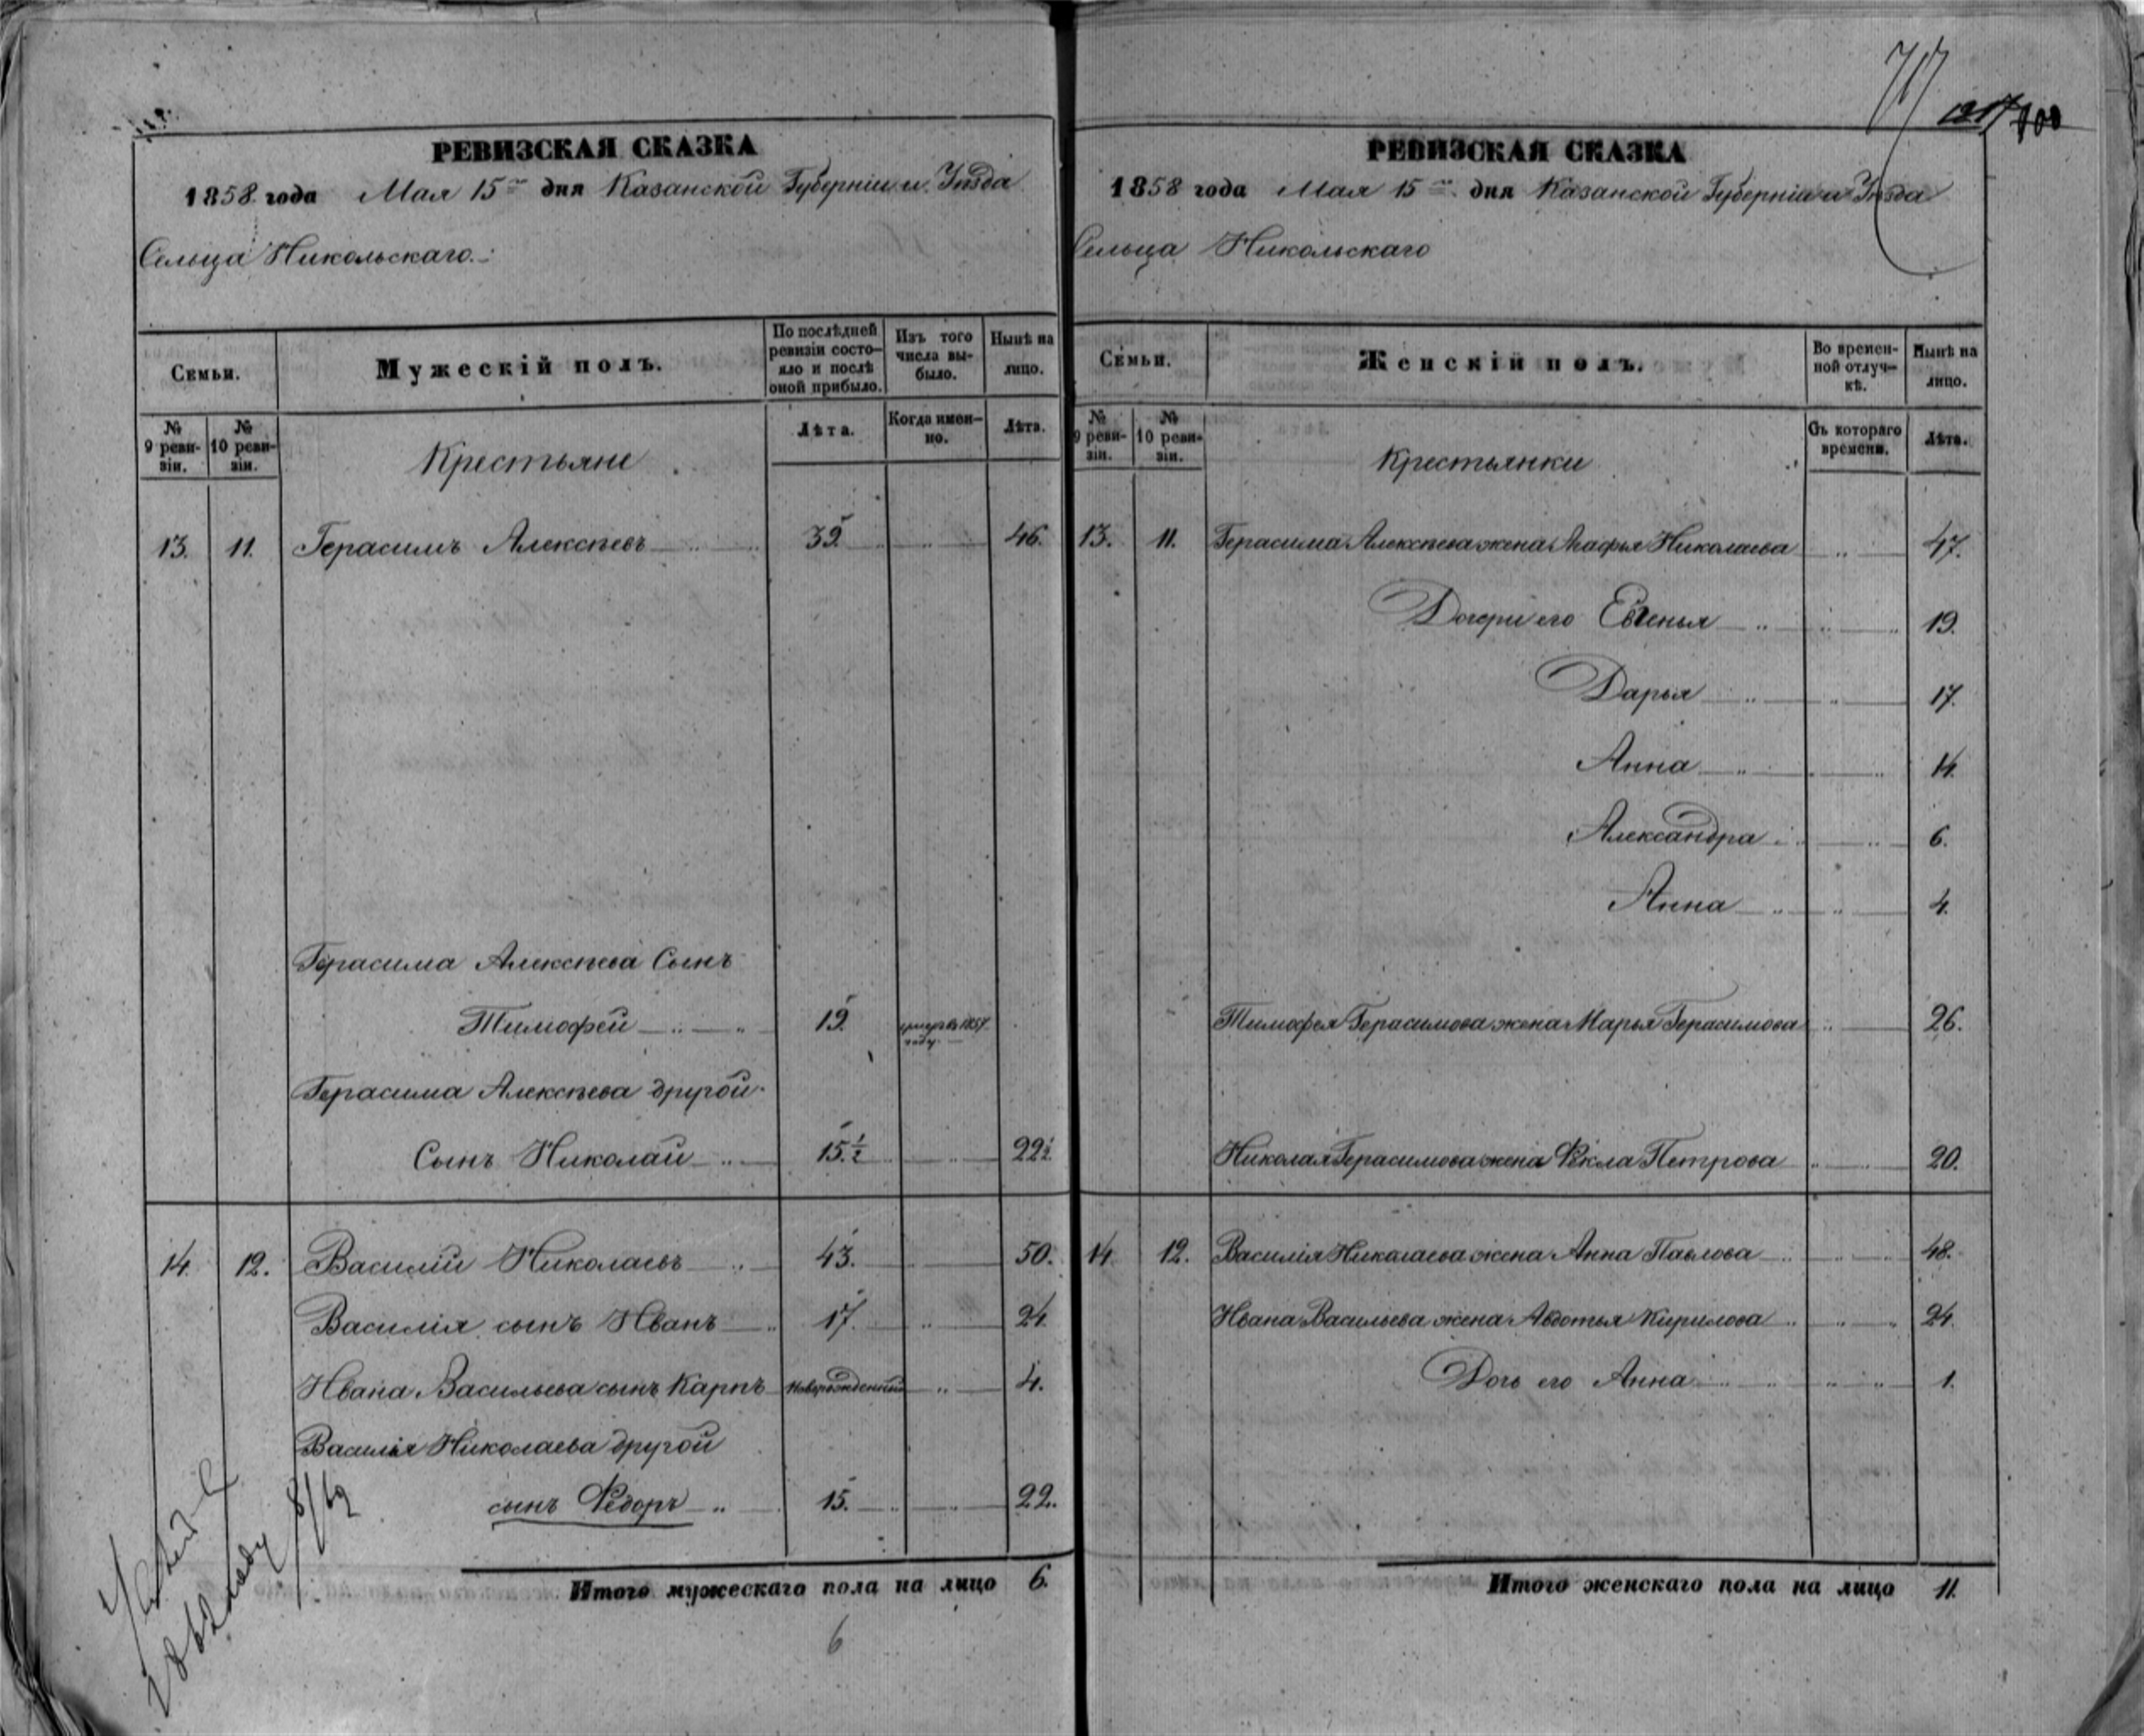 717
1217 800
РЕВИЗСКАЯ СКАЗКА
1858 года Мая 15го дня Казанской Губерніи и Уѣзда
Сельца Никольскаго.
Семьи.
Мужескій полъ.
По послѣдней ревизіи состояло и послѣ оной прибыло.
Изъ того числа выбыло.
Нынѣ на лицо.
№ 9 ревизіи.
№ 10 ревизіи.
Крестьяне
Лѣта.
Когда именно.
Лѣта.
13. 11. Герасимъ Алексѣевъ 39. 46.
Герасима Алексѣева Сынъ
Тимофей 19. умеръ въ 1857 году
Герасима Алексѣева другой
Сынъ Николай 15 1/2 22 1/2
14. 12. Василій Николаевъ 43. 50.
Василія сынъ Иванъ 17. 24.
Ивана Васильева сынъ Карпъ новорожденный 4.
Василія Николаева другой
сынъ Ѳедоръ 15. 22.
Итого мужескаго пола на лицо 6.
6
РЕВИЗСКАЯ СКАЗКА
1858 года Мая 15го дня Казанской Губерніи и Уѣзда
Сельца Никольскаго
Семьи.
Женскій полъ.
Во временной отлучкѣ.
Нынѣ на лицо.
№ 9 ревизіи.
№ 10 ревизіи.
Крестьянки
Съ котораго времени.
Лѣта.
13. 11. Герасима Алексѣева жена Агафья Николаева 47.
Дочери его Евгенья 19.
Дарья 17.
Анна 14.
Александра 6.
Анна 4.
Тимофея Герасимова жена Марья Герасимова 26.
Николая Герасимова жена Ѳекла Петрова 20.
14. 12. Василія Николаева жена Анна Павлова 48.
Ивана Васильева жена Авдотья Кирилова 24.
Дочь его Анна 1.
Итого женскаго пола на лицо 11.